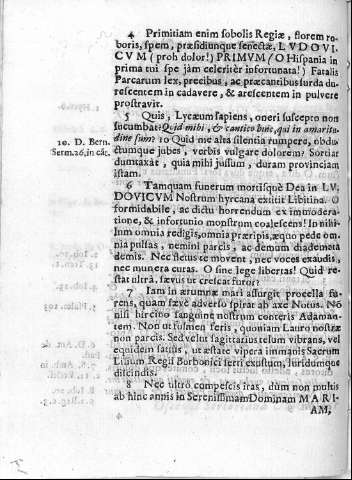 4 Primitiam enim sobolis Regiæ, florem ro-
boris, spem, præsidiunque senectæ, LVDOVI-
CVM (proh dolor!) PRIMVM (O Hispania in
prima tui spe jàm celeritèr infortunata!) Fatalis
Parcarum lex, precibus, ac præcantibus surda du-
rescentem in cadavere, & arescentem in pulvere
prostravit.
5 Quis, Lycæum sapiens, oneri suscepto non
sucumbat: Quid mihi, & cantico huic, qui in amaritu-
dine sum? 10 Quid me alta silentia rumpere, obdu-
10. D. Bern.
ctumque jubes, verbis vulgare dolorem? Sortiar
Serm. 26, in cât.
dumtaxàt, quia mihi jussum, duram provinciam
istam.
6 Tamquam funerum mortisque Dea in LV-
DOVICVM Nostrum hyrcana exitiit Libitina. O
formidabile, ac dictu horrendum ex immodera-
tione, & infortunio monstrum coalescens! In nihi-
lum omnia redigis, omnia præripis, æquo pede om-
nia pulsas, nemini parcis, ac demum diademata
demis. Nec fletus te movent, nec voces exaudis,
nec munera curas. O sine lege libertas! Quid re-
stat ultra, sævus ut crelcat furor?
7 Iam in ærumnæ mali assurgit procella fu-
rens, quam sæve adverso spirat ab axe Notus. Nô
nisi hircino sanguine nostrum conteris Adaman-
tem. Non ut fulmen feris, quoniam Lauro nostræ
non parcis. Sed velut sagittarius telum vibrans, vel
equidem satius, ut æstate vipera immanis Sacrum
Lilium Regii Borbonici ferri exustum, luridumque
discindis.
8 Nec ultrò compescis iras, dùm non multis
ab hinc annis in Serenissimam Dominam MARI-
AM,